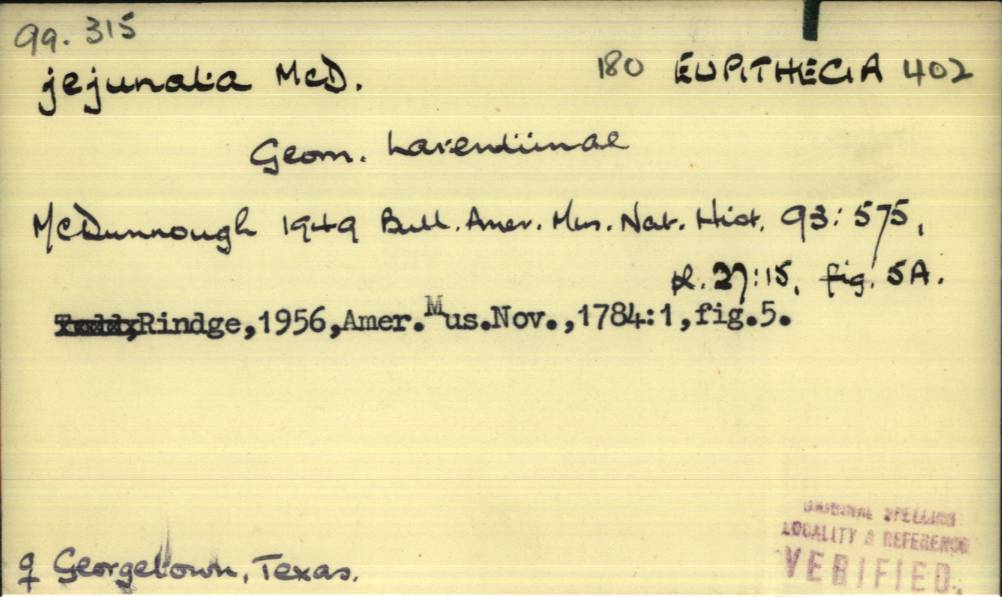 99. 315
jejunata McD. 180 EUPITHECIA 402
Geom. Larentiinae
McDunnough 1949 Bull. Amer. Mus. Nat. Hist. 93: 575,
pl. 27:15, fig. 5A.
Rindge,1956,Amer.Mus.Nov.,1784:1,fig.5.
ORIGINAL SPELLING
LOCALITY & REFERENCE
VERIFIED.
♀ Georgetown, Texas.